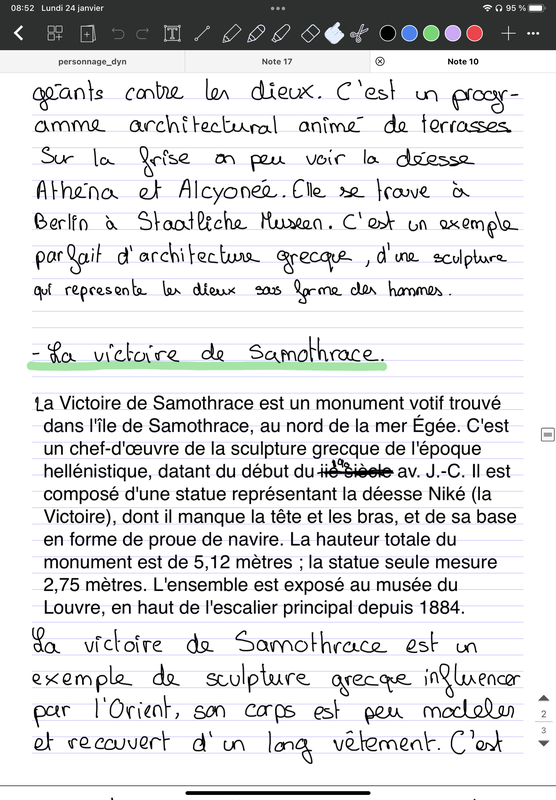 08:52 Lundi 24 janvier
95 %
personnage_dyn
Note 17
Note 10
géants contre les dieux. C'est un progr-
amme architectural animé de terrasses
Sur la frise on peu voir la déesse
Athéna et Alcyonée. Elle se trouve à
Berlin à Staatliche Museen. C'est un exemple
parfait d'architecture grecque, d'une sculpture
qui represente les dieux sous forme des hommes.
- La victoire de Samothrace.
La Victoire de Samothrace est un monument votif trouvé
dans l'île de Samothrace, au nord de la mer Égée. C'est
un chef-d'œuvre de la sculpture grecque de l'époque
hellénistique, datant du début du iie siècle av. J.-C. Il est
composé d'une statue représentant la déesse Niké (la
Victoire), dont il manque la tête et les bras, et de sa base
en forme de proue de navire. La hauteur totale du
monument est de 5,12 mètres ; la statue seule mesure
2,75 mètres. L'ensemble est exposé au musée du
Louvre, en haut de l'escalier principal depuis 1884.
La victoire de Samothrace est un
exemple de sculpture grecque influencer
par l'Orient, son corps est peu modeler
et recouvert d'un long vêtement. C'est
2
3